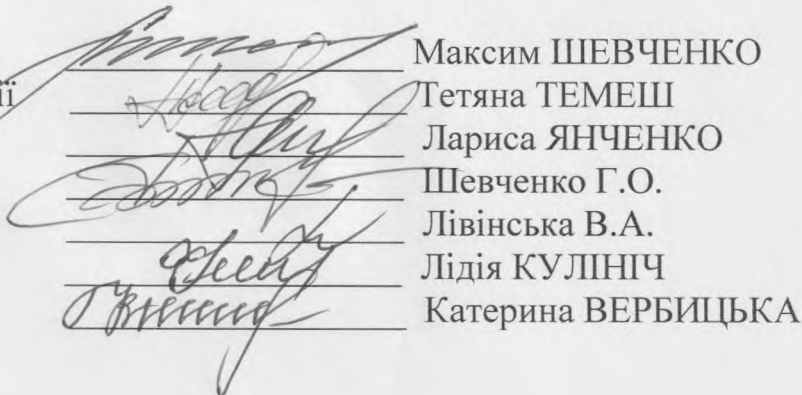 Максим ШЕВЧЕНКО
ії Тетяна ТЕМЕШ
Лариса ЯНЧЕНКО
Шевченко Г.О.
Лівінська В.А.
Лідія КУЛІНІЧ
Катерина ВЕРБИЦЬКА